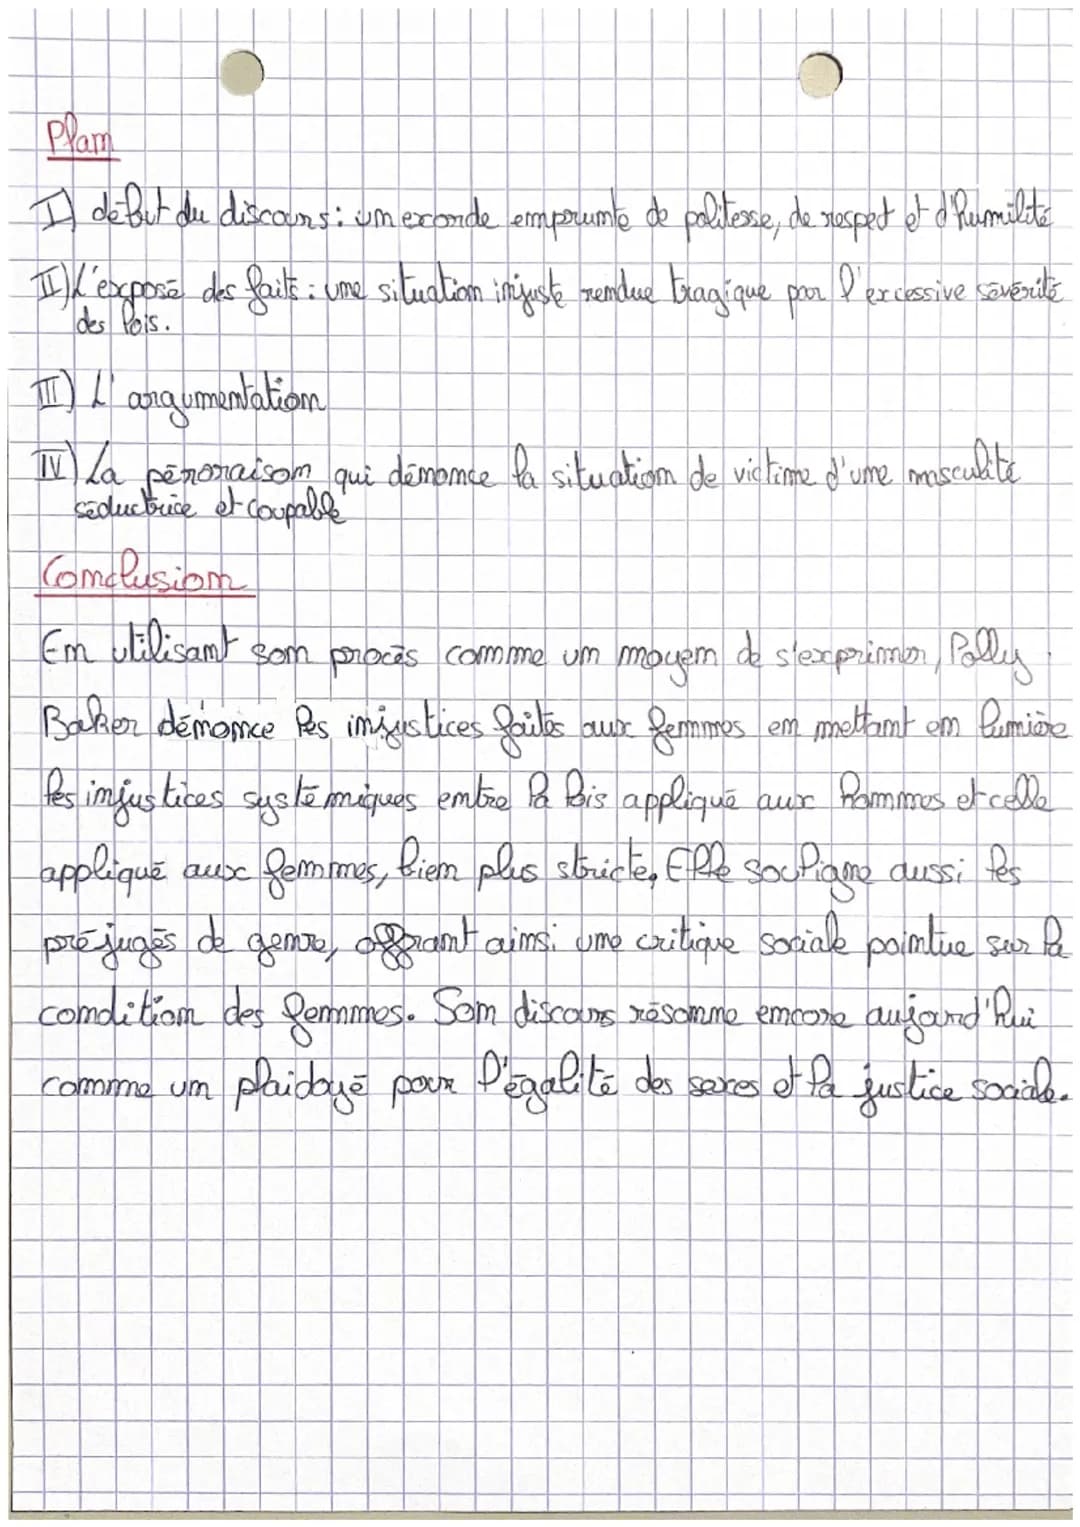 Plan
I) début du discours : un exorde emprunté de politesse, de respect et d'humilité
II) L'exposé des faits : une situation injuste rendue tragique par l'excessive sévérité
des lois.
III) L'argumentation
IV) La péroraison qui dénonce la situation de victime d'une masculité
séductrice et coupable
Conclusion
En utilisant son procès comme un moyen de s'exprimer, Polly
Baker dénonce les injustices faites aux femmes en mettant en lumière
les injustices systémiques entre la lois appliqué aux hommes et celle
appliqué aux femmes, bien plus stricte, Elle souligne aussi les
préjugés de genre, offrant ainsi une critique sociale pointue sur la
condition des femmes. Son discours résonne encore aujourd'hui
comme un plaidoyé pour l'égalité des sexes et la justice sociale.